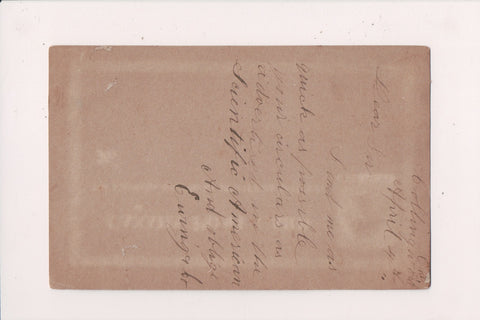 April 4
Dear Sir
Send me as
quick as possible
your circulars as
advertised in the
Scientific American
And oblige